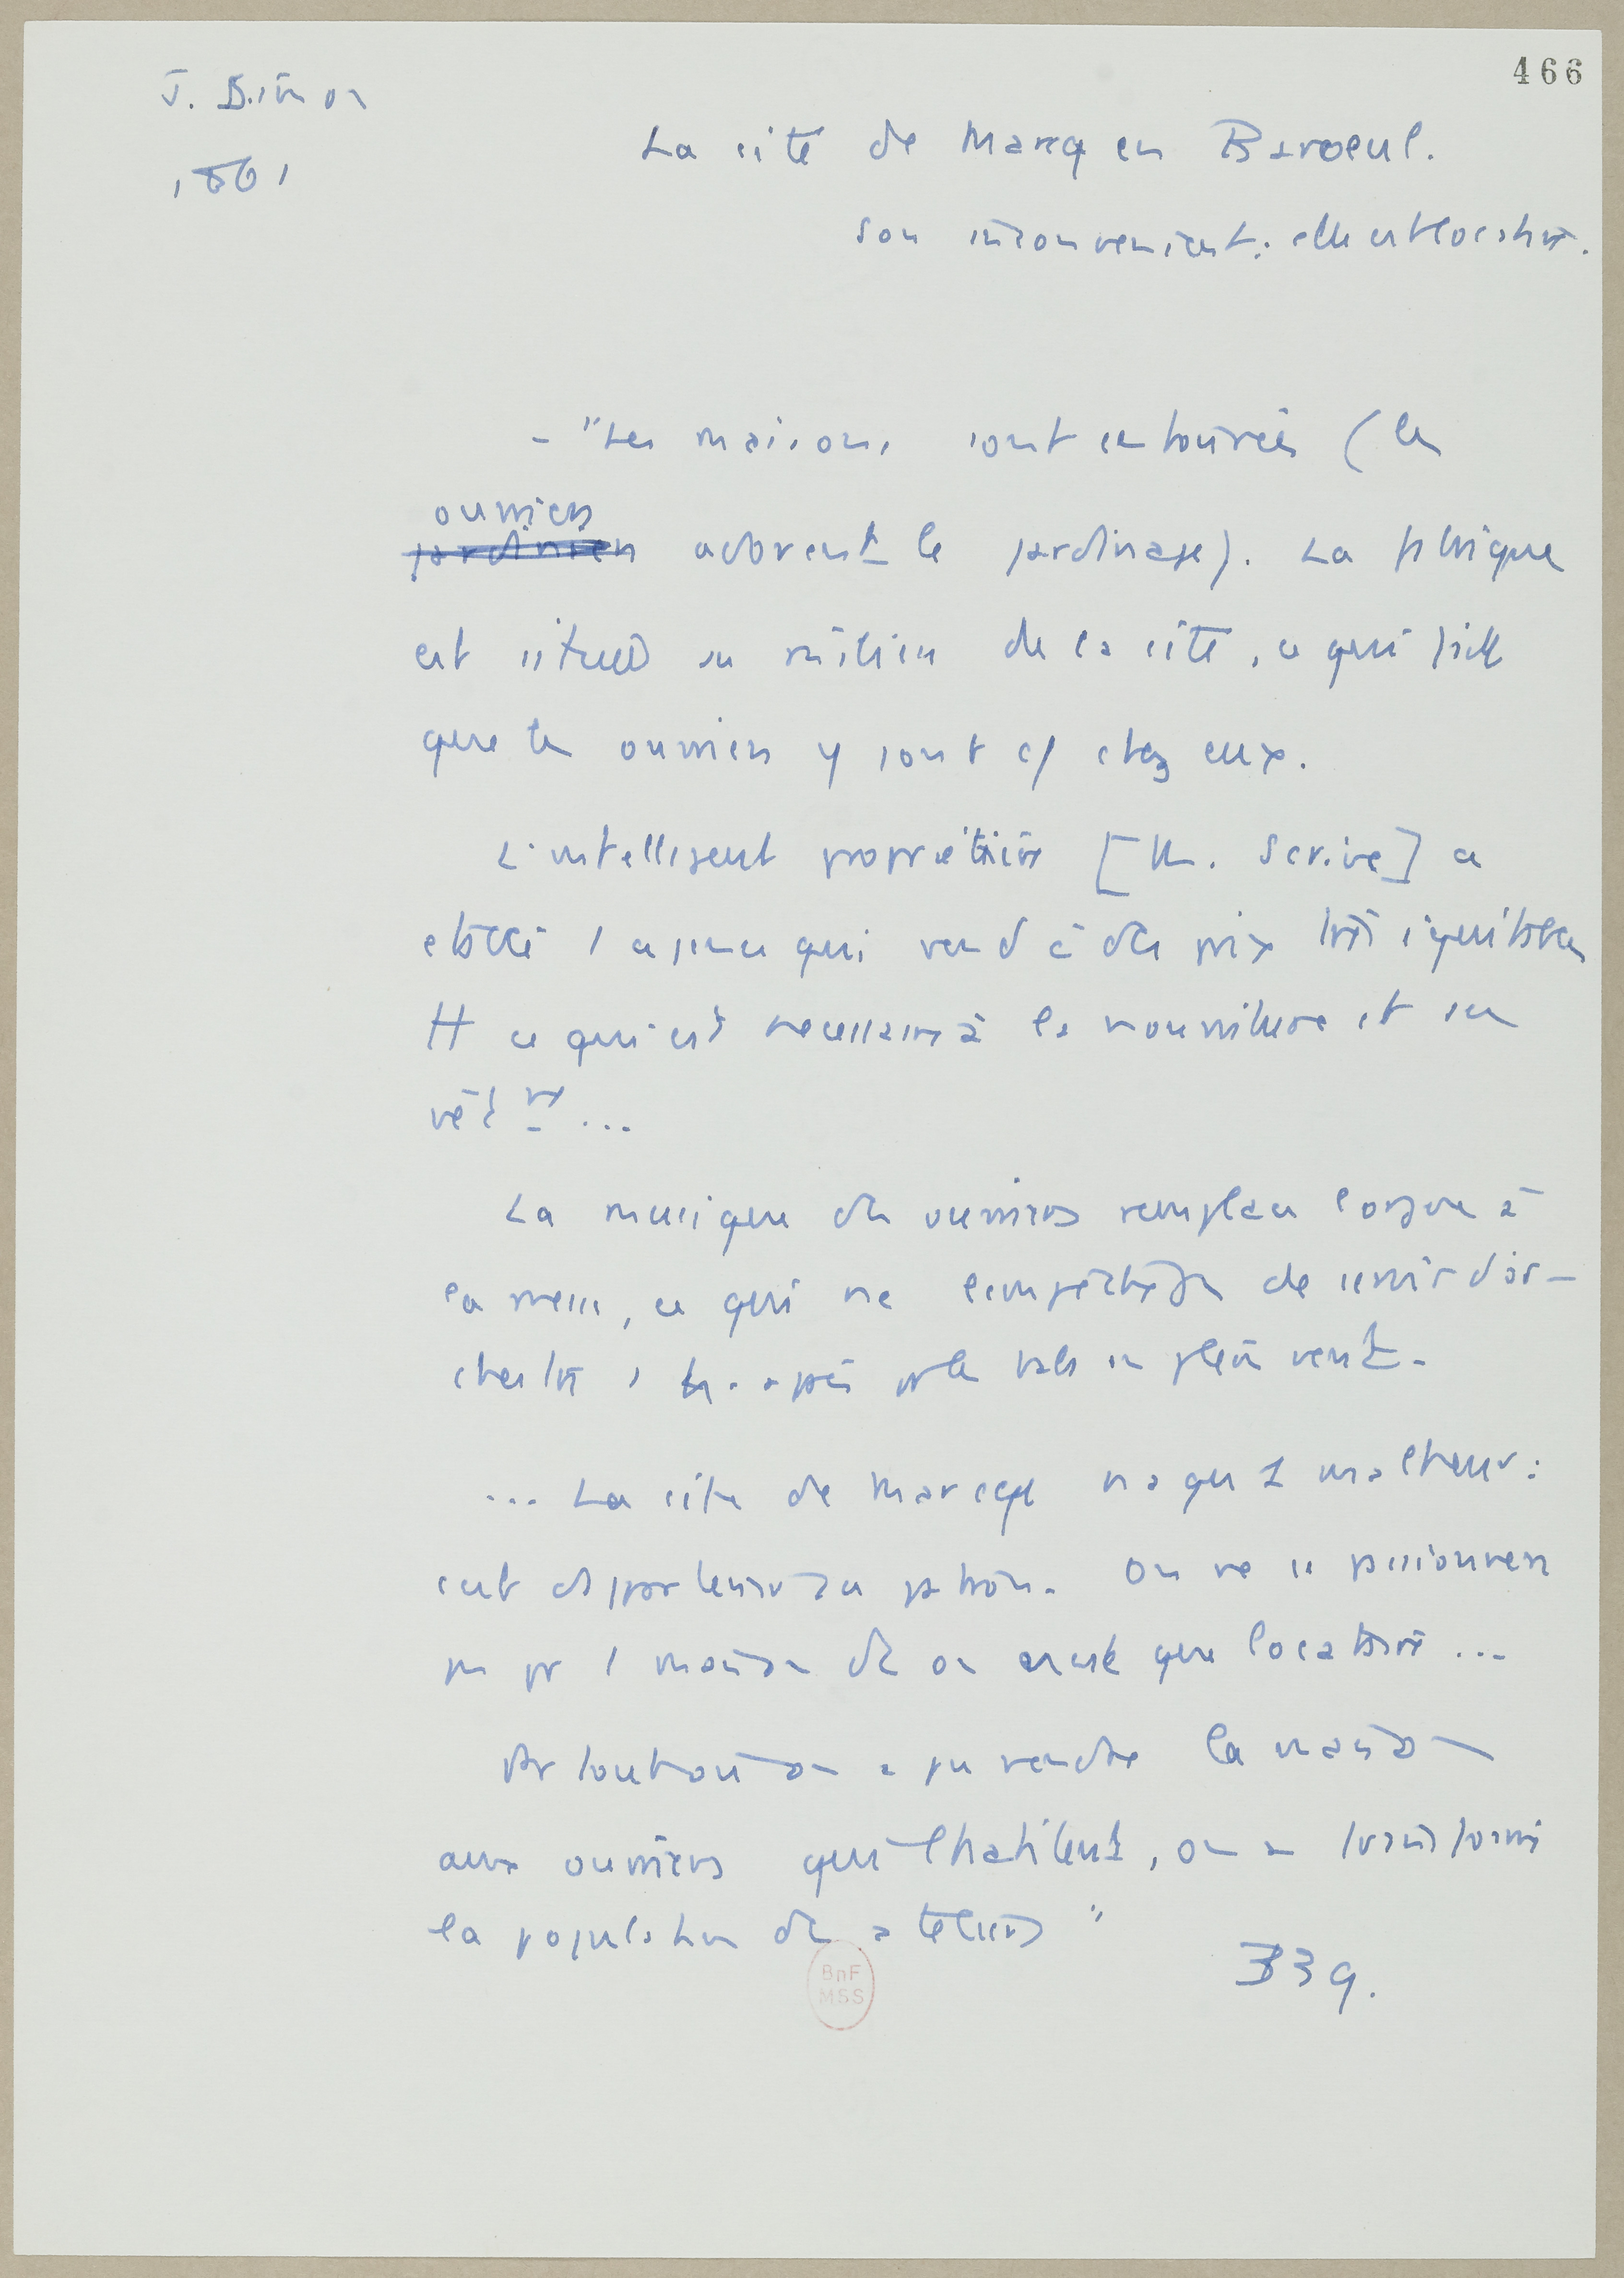 466
J. Simon
1861
La cité de Marcq en Baroeul.
Son inconvenient: elle est locative.
- "Les maisons sont entourées (les
ouvriers
jardiniers adorent le jardinage). La fabrique
est située au milieu de la cité, ce qui fait
que les ouvriers y sont c/ chez eux.
L'intelligent propriétaire [M. Scrive] a
établi 1 agence qui vend à des prix très équitables
tt ce qui est necessaire à la nourriture et au
vêt nt ...
La musique des ouvriers remplace l'orgue à
la messe, ce qui ne l'empêche pas de servir d'or-
chestre après pr le bal en plein vent.
... La cité de Marcq n'a qu'1 malheur:
c'est d'appartenir au patron. On ne se passionnera
pas pr 1 maison dt on n'est que locataire ...
Partout où on a pu vendre la maison
aux ouvriers qui l'habitent, on a transformé
la population des ateliers "
339.
BnF
MSS